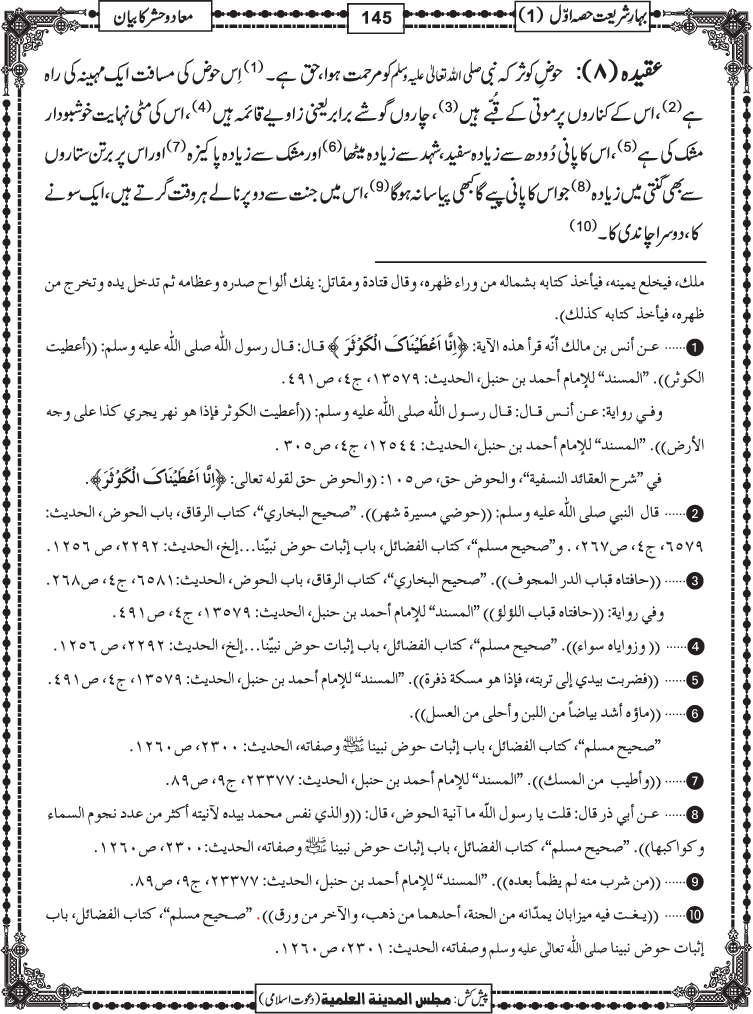 بہارِ شریعت حصہ اوّل (1)
145
معاد و حشر کا بیان
عقیدہ (۸): حوضِ کوثر کہ نبی صلی اللہ تعالیٰ علیہ وسلم کو مرحمت ہوا، حق ہے۔ (1) اِس حوض کی مسافت ایک مہینہ کی راہ
ہے (2)، اس کے کناروں پر موتی کے قُبّے ہیں (3)، چاروں گوشے برابر یعنی زاویے قائمہ ہیں (4)، اس کی مٹی نہایت خوشبودار
مشک کی ہے (5)، اس کا پانی دُودھ سے زیادہ سفید، شہد سے زیادہ میٹھا (6) اور مشک سے زیادہ پاکیزہ (7) اور اس پر برتن ستاروں
سے بھی گنتی میں زیادہ (8) جو اس کا پانی پیے گا کبھی پیاسا نہ ہوگا (9)، اس میں جنت سے دو پرنالے ہر وقت گرتے ہیں، ایک سونے
کا، دوسرا چاندی کا۔ (10)
ملك، فيخلع يمينه، فيأخذ كتابه بشماله من وراء ظهره، وقال قتادة ومقاتل: يفك ألواح صدره وعظامه ثم تدخل يده وتخرج من
ظهره، فيأخذ كتابه كذلك).
1 ...... عـن أنس بن مالك أنّه قرأ هذه الآية: ﴿اِنَّا اَعْطَيْنَاکَ الْكَوْثَرَ﴾ قـال: قـال رسول اللّٰه صلى اللّٰه عليه وسلم: ((أعطيت
الكوثر)). ”المسند“ للإمام أحمد بن حنبل، الحديث: ١٣٥٧٩، ج٤، ص٤٩١.
وفـي رواية: عـن أنـس قـال: قـال رسـول اللّٰه صلى اللّٰه عليه وسلم: ((أعطيت الكوثر فإذا هو نهر يجري كذا على وجه
الأرض)). ”المسند“ للإمام أحمد بن حنبل، الحديث: ١٢٥٤٤، ج٤، ص ٣٠٥ .
في ”شرح العقائد النسفية“، والحوض حق، ص١٠٥: (والحوض حق لقوله تعالى: ﴿اِنَّا اَعْطَيْنَاکَ الْكَوْثَرَ﴾.
2 ...... قال النبي صلى اللّٰه عليه وسلم: ((حوضي مسيرة شهر)). ”صحيح البخاري“، كتاب الرقاق، باب الحوض، الحديث:
٦٥٧٩، ج٤، ص٢٦٧، . و”صحيح مسلم“، كتاب الفضائل، باب إثبات حوض نبيّنا...إلخ، الحديث: ٢٢٩٢، ص ١٢٥٦.
3 ...... ((حافتاه قباب الدر المجوف)). ”صحيح البخاري“، كتاب الرقاق، باب الحوض، الحديث:٦٥٨١، ج٤، ص٢٦٨.
وفي رواية: ((حافتاه قباب اللؤلؤ)) ”المسند“ للإمام أحمد بن حنبل، الحديث: ١٣٥٧٩، ج٤، ص٤٩١.
4 ...... (( وزواياه سواء)). ”صحيح مسلم“، كتاب الفضائل، باب إثبات حوض نبيّنا...إلخ، الحديث: ٢٢٩٢، ص ١٢٥٦.
5 ...... ((فضربت بيدي إلى تربته، فإذا هو مسكة ذفرة)). ”المسند“ للإمام أحمد بن حنبل، الحديث: ١٣٥٧٩، ج٤، ص٤٩١.
6 ...... ((ماؤه أشد بياضاً من اللبن وأحلى من العسل)).
”صحيح مسلم“، كتاب الفضائل، باب إثبات حوض نبينا ﷺ وصفاته، الحديث: ٢٣٠٠، ص١٢٦٠.
7 ...... ((وأطيب من المسك)). ”المسند“ للإمام أحمد بن حنبل، الحديث: ٢٣٣٧٧، ج٩، ص٨٩.
8 ...... عـن أبي ذر قال: قلت يا رسول اللّٰه ما آنية الحوض، قال: ((والذي نفس محمد بيده لآنيته أكثر من عدد نجوم السماء
وكواكبها)). ”صحيح مسلم“، كتاب الفضائل، باب إثبات حوض نبينا ﷺ وصفاته، الحديث:٢٣٠٠، ص١٢٦٠.
9 ...... ((من شرب منه لم يظمأ بعده)). ”المسند“ للإمام أحمد بن حنبل، الحديث: ٢٣٣٧٧، ج٩، ص٨٩.
10 ...... ((يـغـت فيه ميزابان يمدّانه من الجنة، أحدهما من ذهب، والآخر من ورق)). ”صـحيح مسلم“، كتاب الفضائل، باب
إثبات حوض نبينا صلى اللّٰه تعالى عليه وسلم وصفاته، الحديث: ٢٣٠١، ص١٢٦٠.
پیش کش: مجلس المدينة العلمية (دعوت اسلامی)